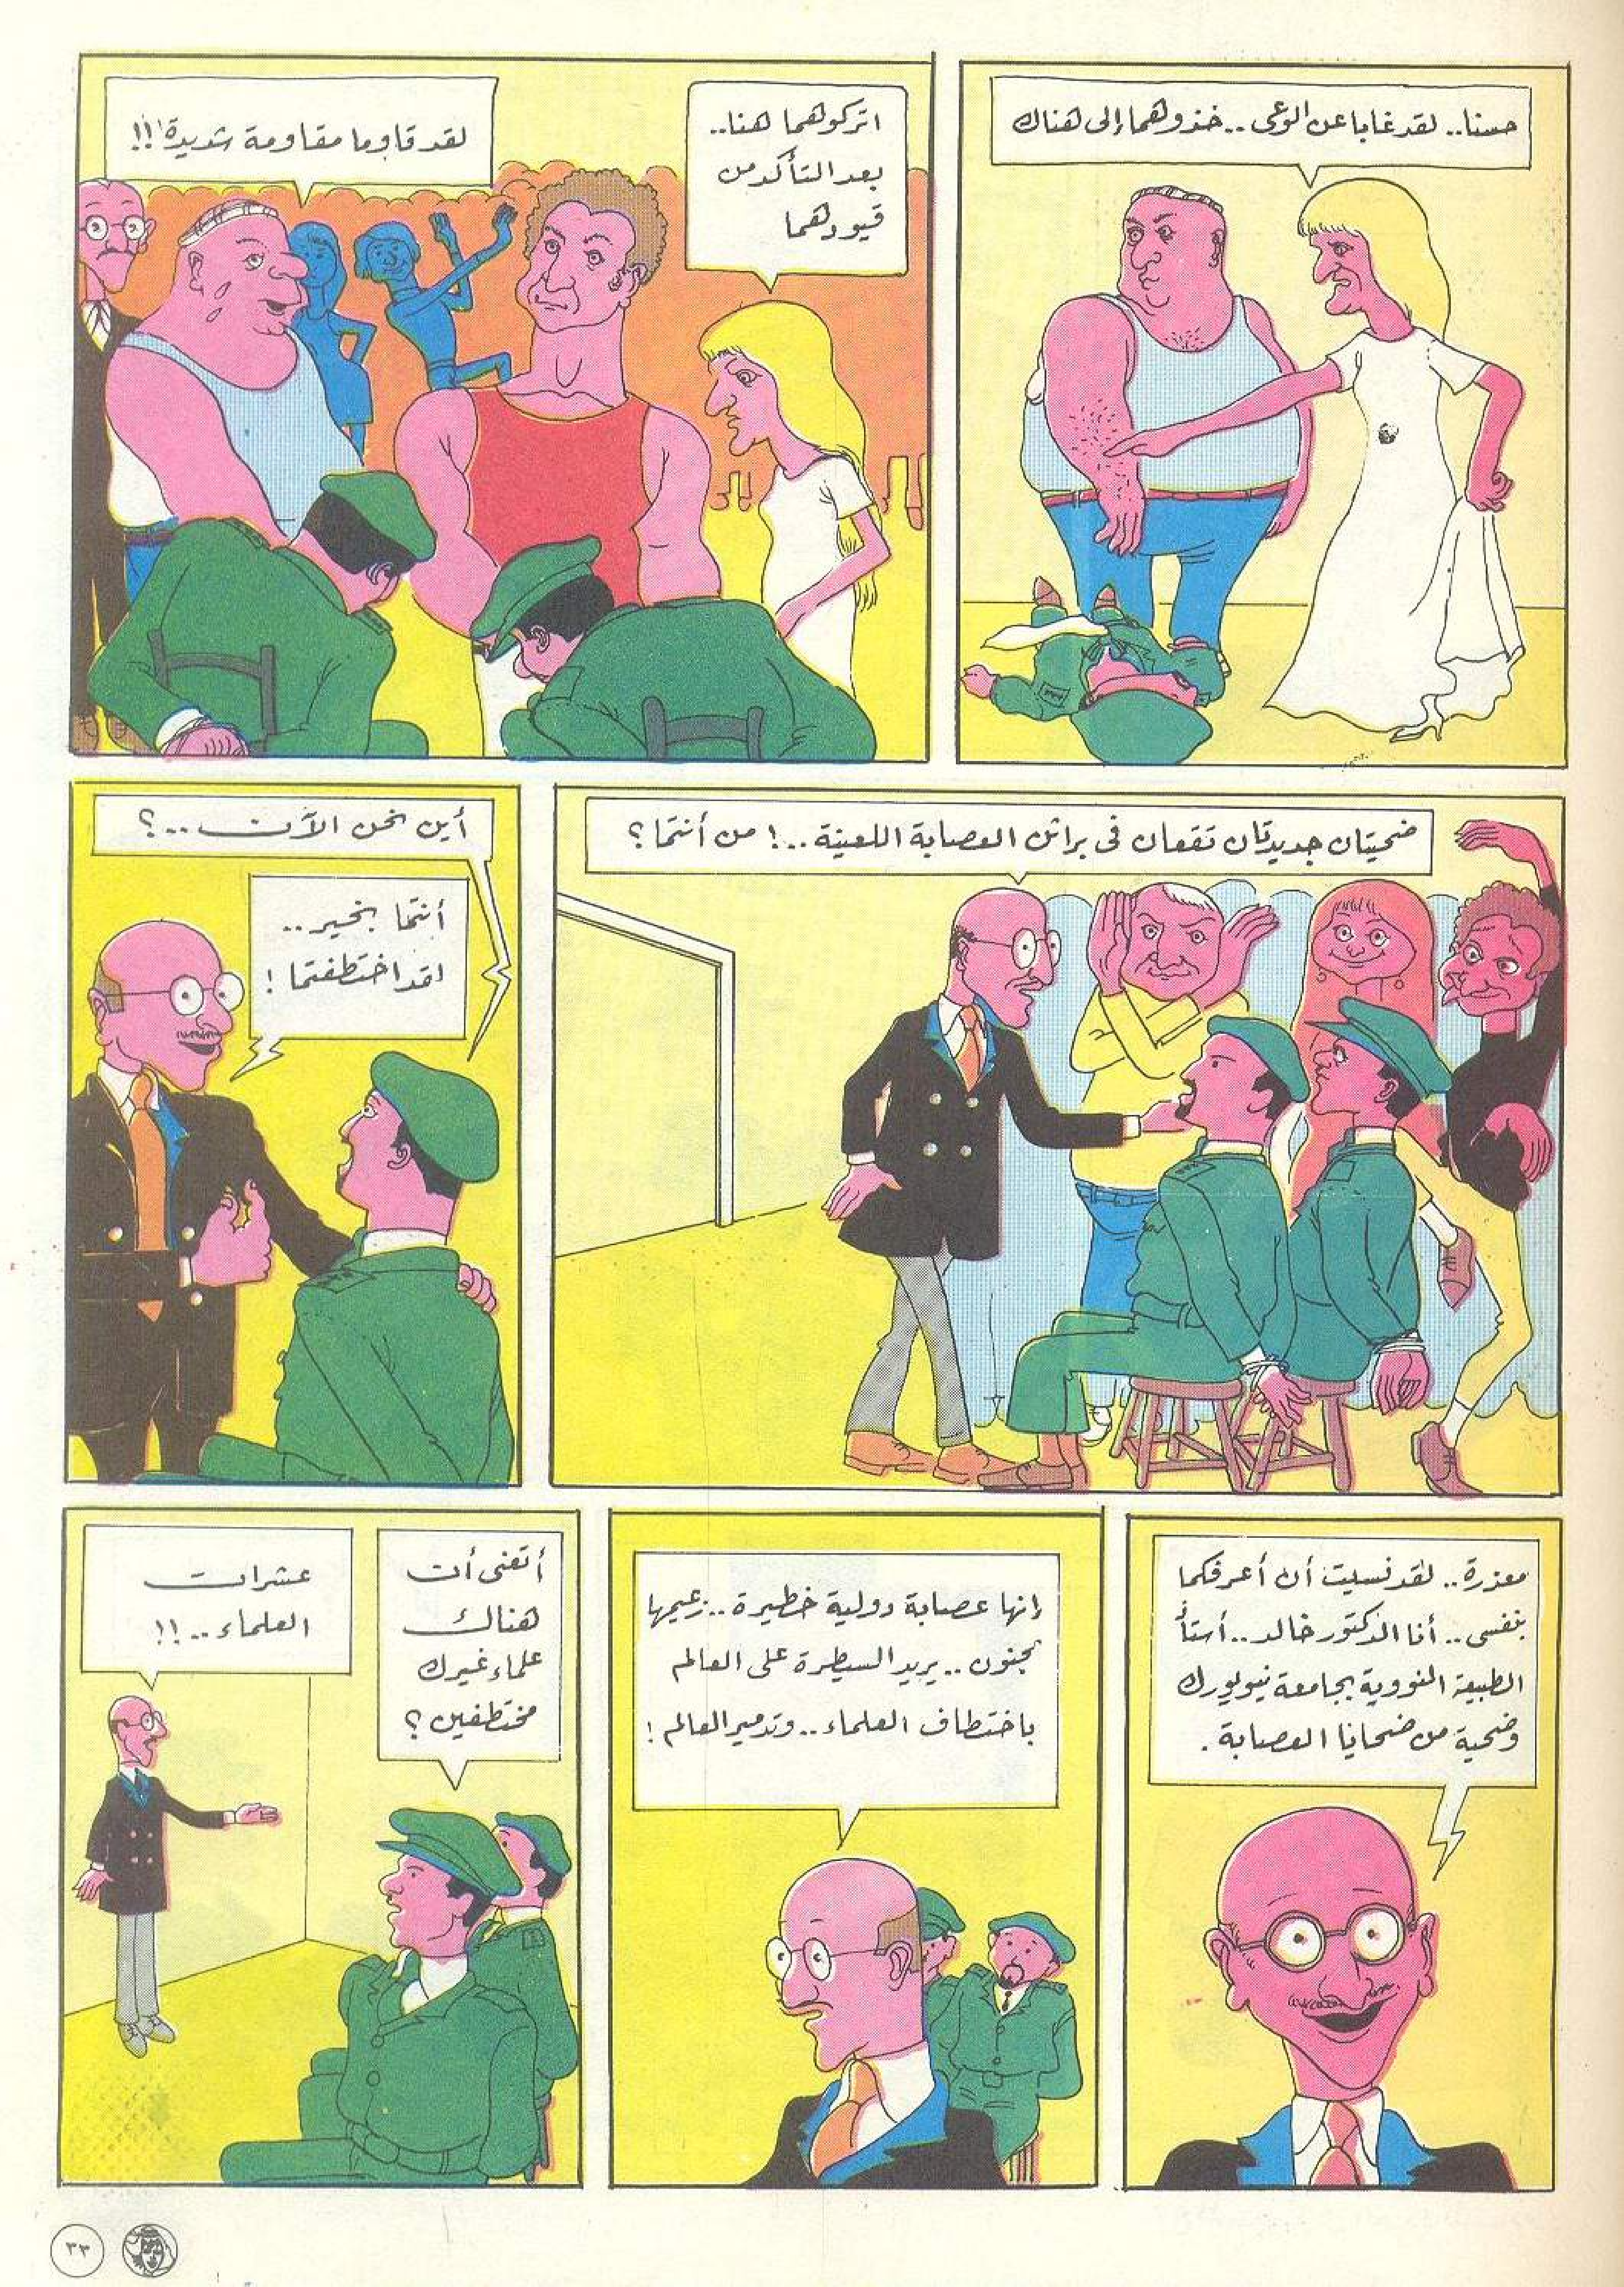 حسنا.. لقد غابا عن الوعى.. خذوهما إلى هناك
اتركوهما هنا..
بعد التأكد من
قيودهما
لقد قاوما مقاومة شديدة!!
ضحيتان جديدتان تقعان فى براثن العصابة اللعينة..! من أنتما؟
أين نحن الآن ...؟
أنتما بخير..
لقد اختطفتما!
معذرة.. لقد نسيت أن أعرفكما
بنفسى.. أنا الدكتور خالد.. أستاذ
الطبيعة النووية بجامعة نيويورك
وضحية من ضحايا العصابة.
إنها عصابة دولية خطيرة.. زعيمها
مجنون.. يريد السيطرة على العالم
باختطاف العلماء.. وتدمير العالم!
أتعنى أن
هناك
علماء غيرك
مختطفين؟
عشرات
العلماء..!!
٣٣